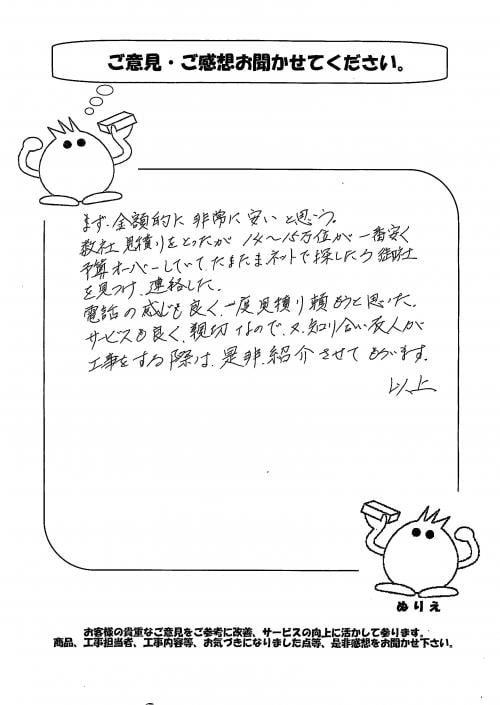 ご意見・ご感想お聞かせてください。
まず、金額的に非常に安いと思う。
数社見積りをとったが 14～15万位が一番安く
予算オーバーしていて、たまたまネットで探したら御社
を見つけ、連絡した。
電話の感じも良く、一度見積り頼もうと思いた。
サービスも良く、親切なので、又、知り合い友人が
工事をする際は、是非、紹介させてもらいます。
以上
ぬりえ
お客様の貴重なご意見をご参考に改善、サービスの向上に活かして参ります。
商品、工事担当者、工事内容等、お気づきになりました点等、是非感想をお聞かせ下さい。